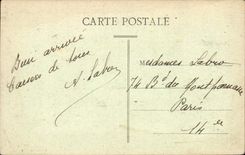 CARTE POSTALE
Bien arrivée
baisers de tous
A. Sabro
Mesdames Sabro
74 Bd du Montparnasse
Paris
14 e